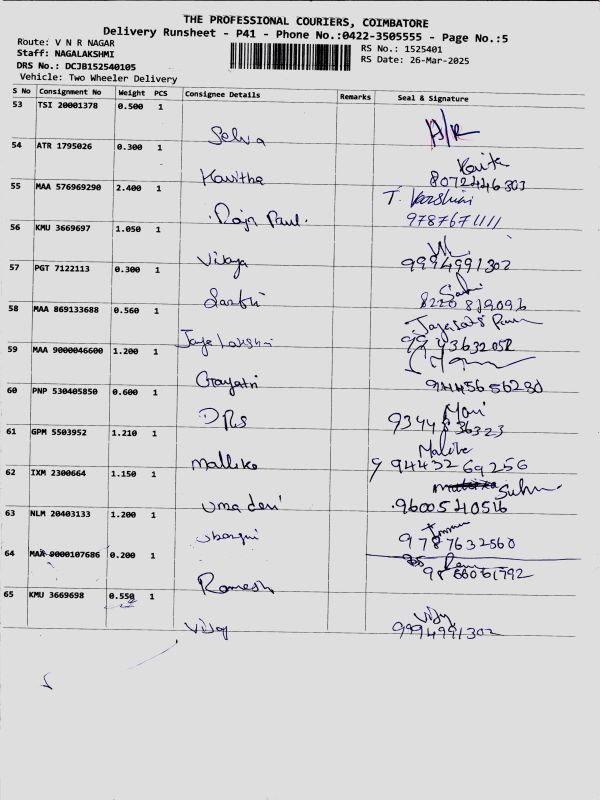 THE PROFESSIONAL COURIERS, COIMBATORE
Delivery Runsheet - P41 - Phone No.:0422-3505555 - Page No.:5
Route: V N R NAGAR
Staff: NAGALAKSHMI
DRS No.: DCJB152540105
Vehicle: Two Wheeler Delivery
RS No.: 1525401
RS Date: 26-Mar-2025
S No Consignment No Weight PCS Consignee Details Remarks Seal & Signature
53 TSI 20001378 0.500 1 Selva A/R
54 ATR 1795026 0.300 1 Kavitha 8072446303
55 MAA 576969290 2.400 1 Raja Paul. T. Varshini 9787671111
56 KMU 3669697 1.050 1 Vijaya 9994991302
57 PGT 7122113 0.300 1
58 MAA 869133688 0.560 1 Jaya Lakshmi
59 MAA 9000046600 1.200 1 Gayatri
60 PNP 530405850 0.600 1 DRS Mani
61 GPM 5503952 1.210 1 mallika 9443269256
62 IXM 2300664 1.150 1 uma devi 9600540516
63 NLM 20403133 1.200 1 9787632560
64 MAA 9000107686 0.200 1 Ramesh
65 KMU 3669698 0.550 1 Vijay Vijay 9994991302